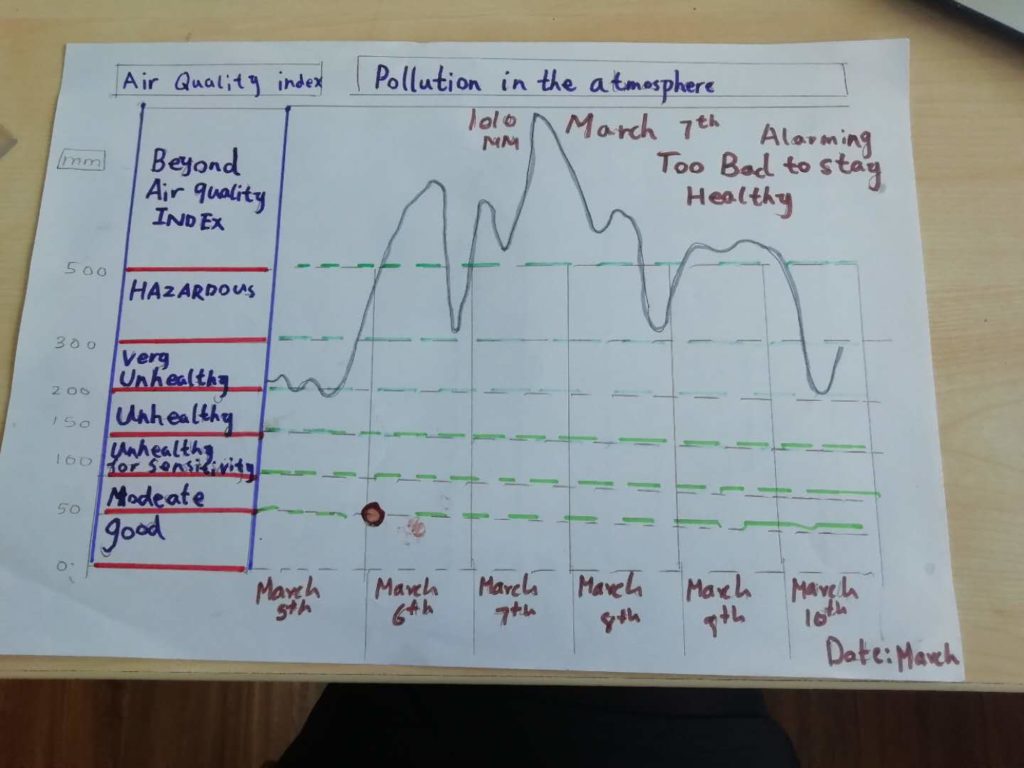 Air Quality index
Pollution in the atmosphere
mm
Beyond
Air quality
INDEX
1010
MM
March 7th
Alarming
Too Bad to stay
Healthy
500
HAZARDOUS
300
Very
Unhealthy
200
150
Unhealthy
Unhealthy
for Sensitivity
100
Modeate
50
good
0
March
5th
March
6th
March
7th
March
8th
March
9th
March
10th
Date: March